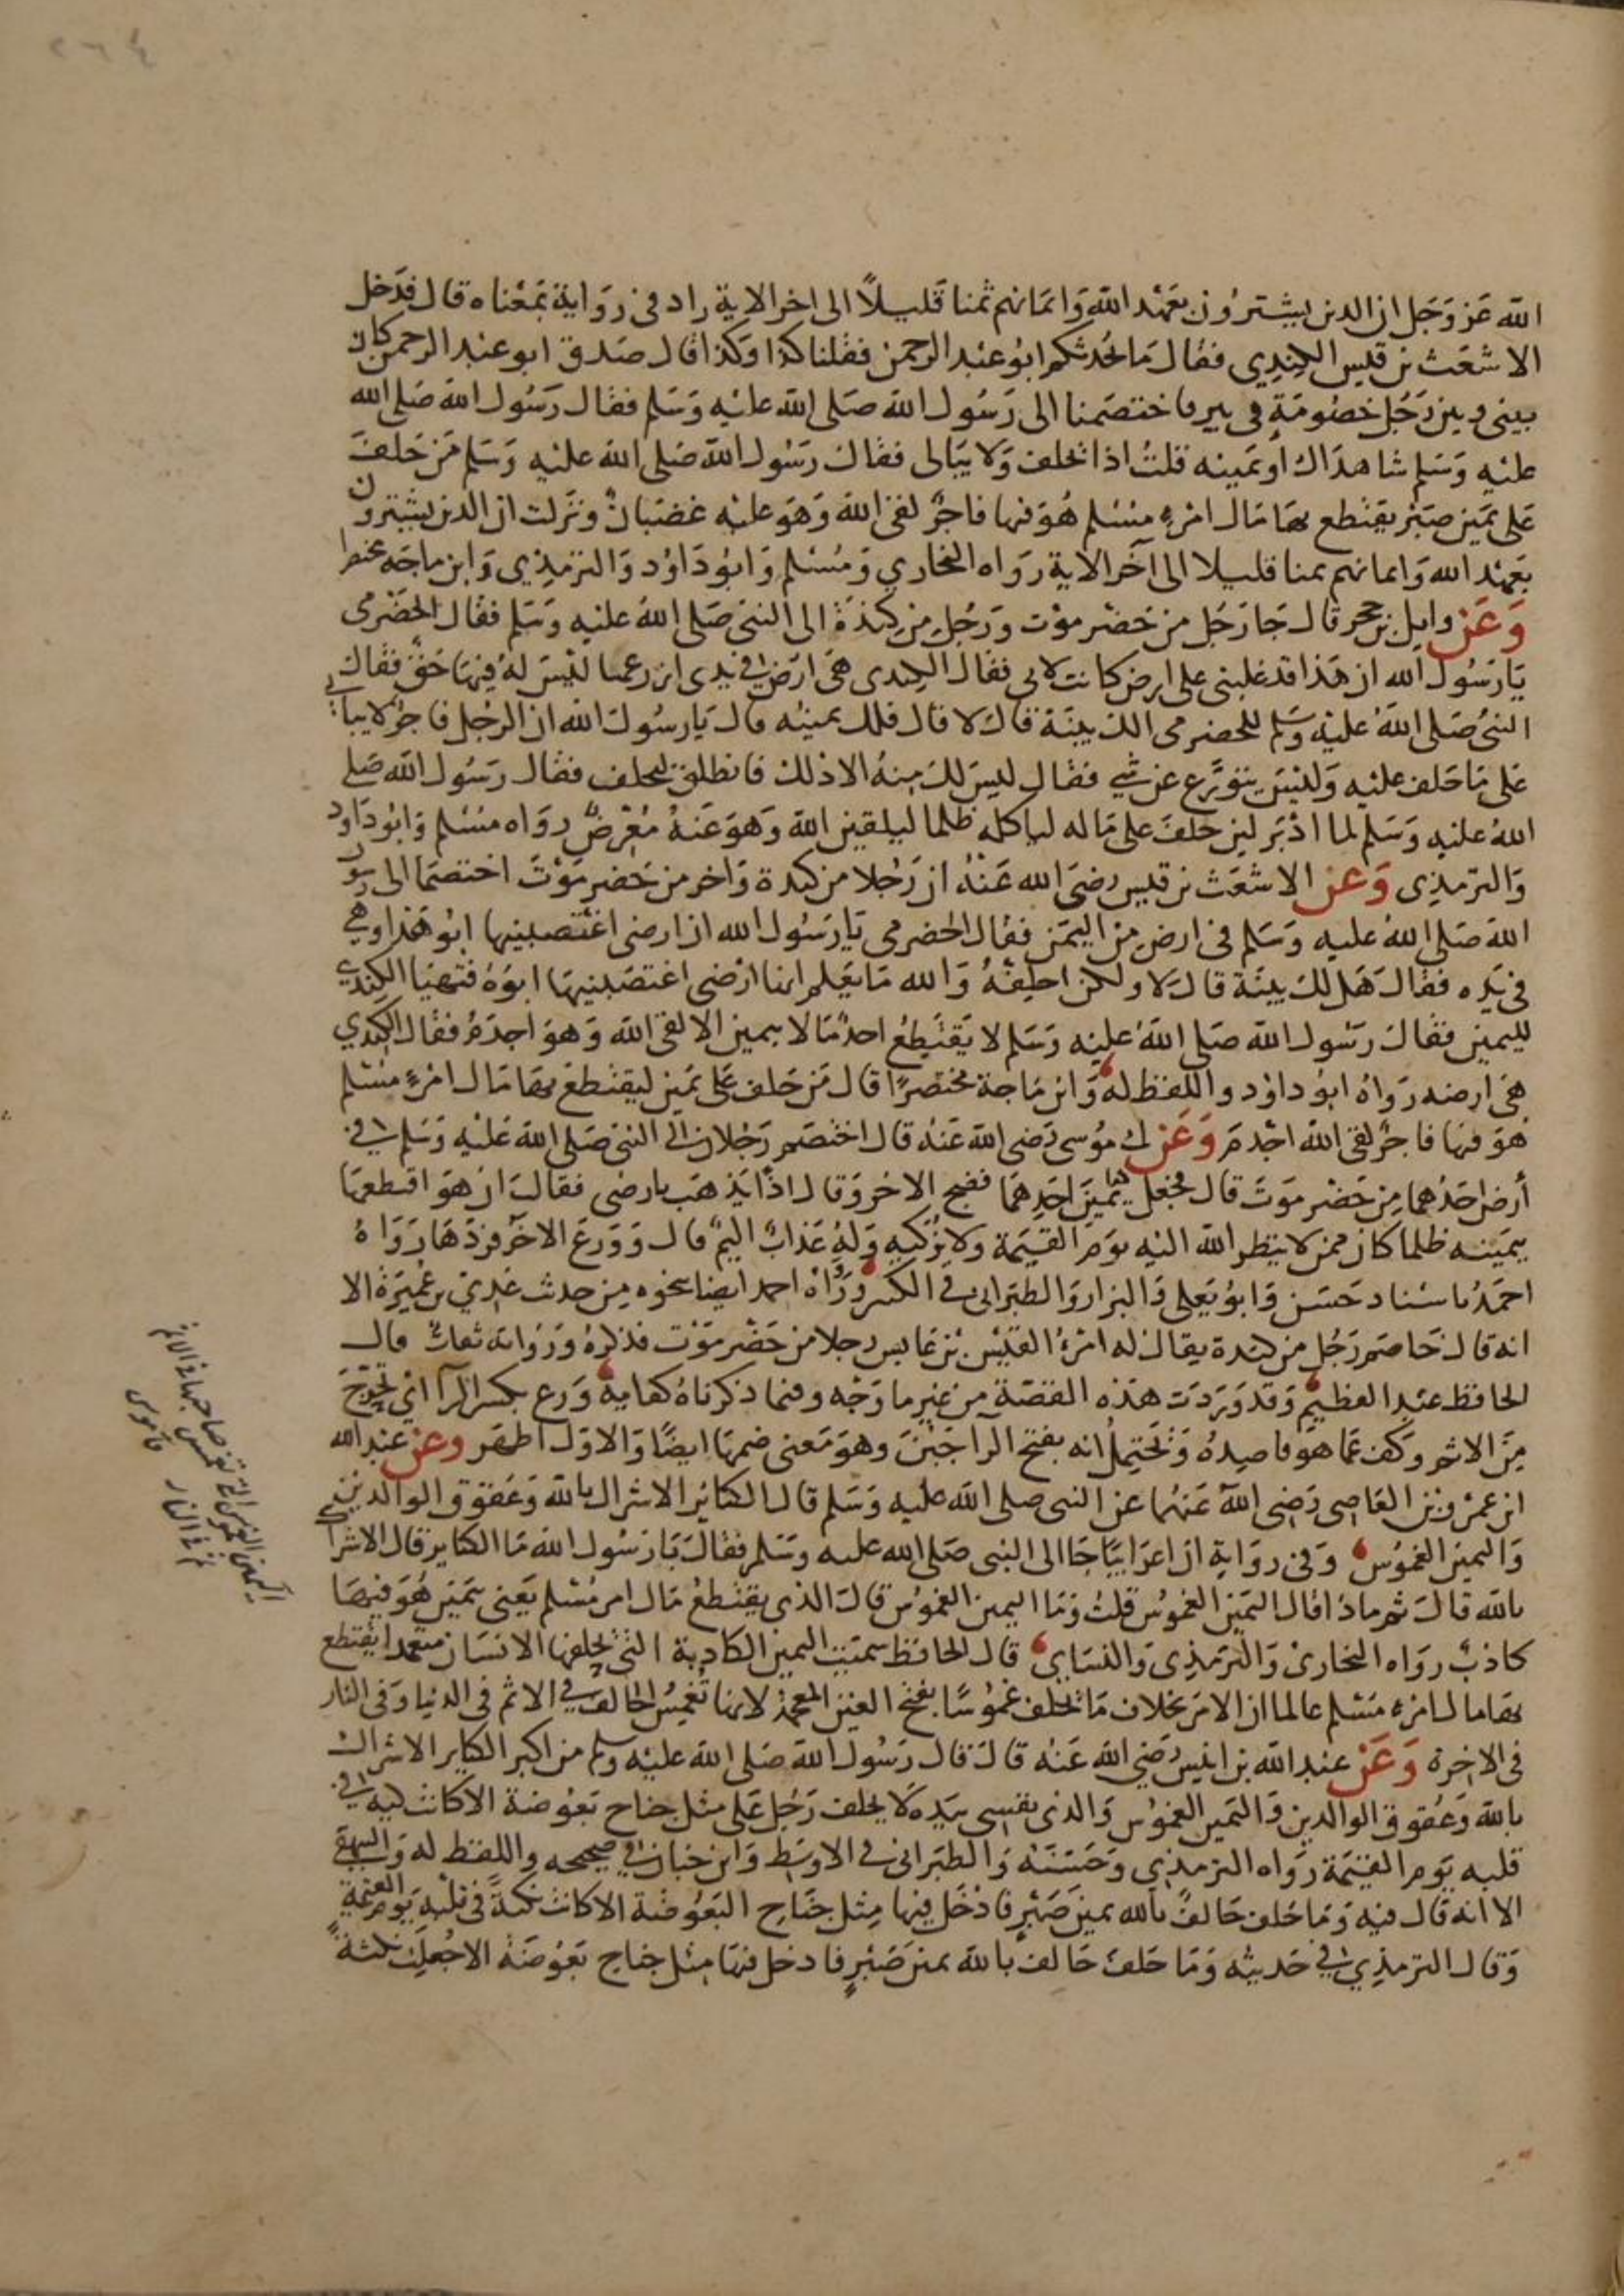 ٢٦٤
الله عَز وَجَل ان الذين يشترون بعَهْد الله وَايمَانهم ثمنا قَليلاً الى اخر الاية زاد فى روَاية بمَعْناه قال فدَخل
الاشعَث بن قيس الكِندِي فقال مَا يحُدثكم ابُو عَبْد الرحمن فقلنا كذا وكذا قال صَدق ابو عبْد الرحمن كان
بينى وبين رَجُل خصُومَةٍ فى بير فاختصَمنا الى رَسُول الله صَلى الله عَليْه وَسَلم فقال رَسُول الله صَلى الله
عليْه وَسَلم شاهدَاك او يَمينه قلتُ اذا يحلف وَلا يبَالى فقال رَسُول الله صَلى الله عليْه وَسَلم مَن حَلفَ
عَلى يَمين صَبْر يقتطع بهَا مَال امْرءٍ مسْلم هُوَ فيها فاجرٌ لقى الله وَهوَ عليْه غضبَانٌ ونزَلت ان الذين يشترون
بعَهْد الله وَايمانهم ثمنا قليلا الى آخر الاية رَوَاه البخاري وَمُسْلم وَابُو دَاوُد وَالترمِذِي وَابن ماجَه مختصرا
وَعَن وايل بن حجر قال جَا رَجَل من حَضْر موْت وَرَجُل مِن كِندَة الى النبىّ صَلى اللهُ عليْه وَسَلم فقال الحَضْرمى
يَا رَسُول الله ان هَذا قد غلبنى على ارض كانت لابى فقال الكِندى هىَ ارَضى فى يدى ازرعها ليْسَ لهُ فِيهَا حَقٌ فقال
النبىُ صَلى اللهُ عليْه وسَلم للحَضرمى الك بينَة قال لا قال فلك يمينه قال يَا رسُول الله ان الرجُل فاجرٌ لا يبالى
عَلى مَا حَلف عليْه وَليْسَ يتوَرَّع عن شىٍ فقال ليسَ لك مِنهُ الا ذلك فانطلق ليحلف فقال رَسُول الله صَلى
اللهُ عليْه وَسَلم لما ادْبَر لين حَلفَ على مَاله لياكله ظلما ليلقين الله وَهوَ عَنهُ مُعْرضٌ رَوَاه مسْلم وَابُو دَاود
وَالترمذِى وَعن الاشعَث بن قيس رضىَ الله عَنْهُ ان رَجُلا من كندة وَاخر من حَضر مَوْتَ اختصَمَا الى رسول
الله صَلى اللهُ عليه وَسَلم فى ارض مِن اليمَن فقال الحَضرمى يَا رَسُول الله ان ارضى اغتصبنيها ابُو هَذا وهى
فى يَده فقال هَل لك بينَة قال لا ولكن احلِفهُ وَالله مَا يَعْلم انها ارْضى اغتصَبنِيهَا ابوُهُ فتهَيَا الكِندِي
لليمين فقالَ رَسُول الله صَلى اللهُ عليْه وَسَلم لا يَقتَطِعُ احدٌ مَالا بيمين الا لقى الله وَهوَ اجذَمُ فقال الكِندِي
هىَ ارضه رَوَاهُ ابُو داوُد وَاللفظ له وَابن مَاجة مختصرًا قال مَن حَلف عَلى يَمين ليقتطعَ بهَا مَال امْرءٍ مسْلم
هوَ فيها فاجرٌ لقى الله اجْذمَ وَعَن ابى مُوسى رَضى الله عَنهُ قال اختصَم رَجُلان الى النبى صَلى الله عَليْه وَسَلم فى
أرض احَدُهما مِن حَضْر موَتَ قال فجعل يَمينَ احَدِهمَا فضج الاخر وَقال اذًا يَذهَب بارضى فقالَ ان هوَ اقتطعهَا
بيمَينه ظلما كان ممن لا ينظر الله اليْه يوَم القيَمة وَلا يُزكيه وَلهُ عَذابٌ اليمٌ قال وَوَرعَ الاخر فرَدهَا رَوَاهُ
احمَدُ باسْناد حَسَن وَابُو يَعلى وَالبزار وَالطبَرانى فى الكبير وَرَوَاهُ احمد ايضا بنحوه مِن حدث عَدِيّ بن عُمَيْرَة الا
انه قال خَاصَم رَجُل من كندة يقال له امْرُءُ القيْس بن عَابس رجلا من حَضْر مَوْت فذكرهُ وَرُوَاته ثقات قال
الحافظ عَبْد العظيم وَقد وَرَدَت هَذه القصّة من غيْر ما وَجْه وفيما ذكرناهُ كفاية وَرع بكسر الرآ ايْ تحَرَّجَ
مِنَ الاثم وَكف عَمَا هوَ قاصِدهُ وَيَحْتمِلُ انه بفتح الرا جَبْنَ وهوَ مَعنى ضمهَا ايضًا وَالاوَل اظهَر وعن عبْد الله
ابن عَمْرو بن العَاصِى رَضى اللهَ عَنهُما عن النبى صلى الله عليه وَسَلم قال الكبَاير الاشراك بالله وَعُقوق الوالدين
وَاليمين الغموُس وَفى روَايةٍ ان اعرَابيًا جَا الى النبى صَلى الله عليه وسَلم فقالَ يَا رَسُول الله مَا الكبَاير قال الاشراك
بالله قالَ ثم ماذا قال اليَمين الغموُس قلتُ وَمَا اليمين الغموُس قالَ الذى يقتطعُ مَال امرٍ مُسْلم يَعنى بيَمين هُوَ فيهَا
كاذبٌ رَوَاه البخارىْ وَالترَمذِى وَالنسَاي قال الحَافظ سميَت اليمين الكاذبة التى يحلفها الانسَان متعَمدًا يقتطع
بهَا مال امرءٍ مسْلم عالما ان الامر بخلاف مَا يحلف غمُوسًا بفتح الغين المعجمة لانها تغمِسُ الحَالف فى الاثم فى الدنيا وَفى النار
فى الاخرة وَعَن عبْد الله بن انيس رَضى الله عَنهُ قالَ قال رَسُول الله صَلى الله عليْه وسلم من اكبر الكباير الاشراك
بالله وَعُقوق الوالدين وَاليَمين الغموُس وَالذى نفسى بيَده لا يحلف رَجُل عَلى مثل جناح بعَوُضة الا كانت كية فى
قلبه يَوم القيَمة رَوَاه الترمذِي وَحَسَنهُ وَالطبَرانى فى الاوسَط وَابن حبَان فى صحيحه وَاللفظ له وَالبيهقى
الا انه قال فيه وَمَا حَلف حَالفٌ بالله يمين صَبْرٍ فادْخَل فيها مِثل جنَاحِ البَعُوضة الا كانت نكتةً فى قلبهِ يَوم القيَمةِ
وَقال الترمذِي فى حَديثه وَمَا حَلفَ حَالف بالله يمين صَبْرٍ فادخل فيهَا مثل جنَاح بَعُوضَة الا جُعِلت نكتةً
اليمين الغموس التى تغمس صاحبها فى الاثم
ثم فى النار قاموس